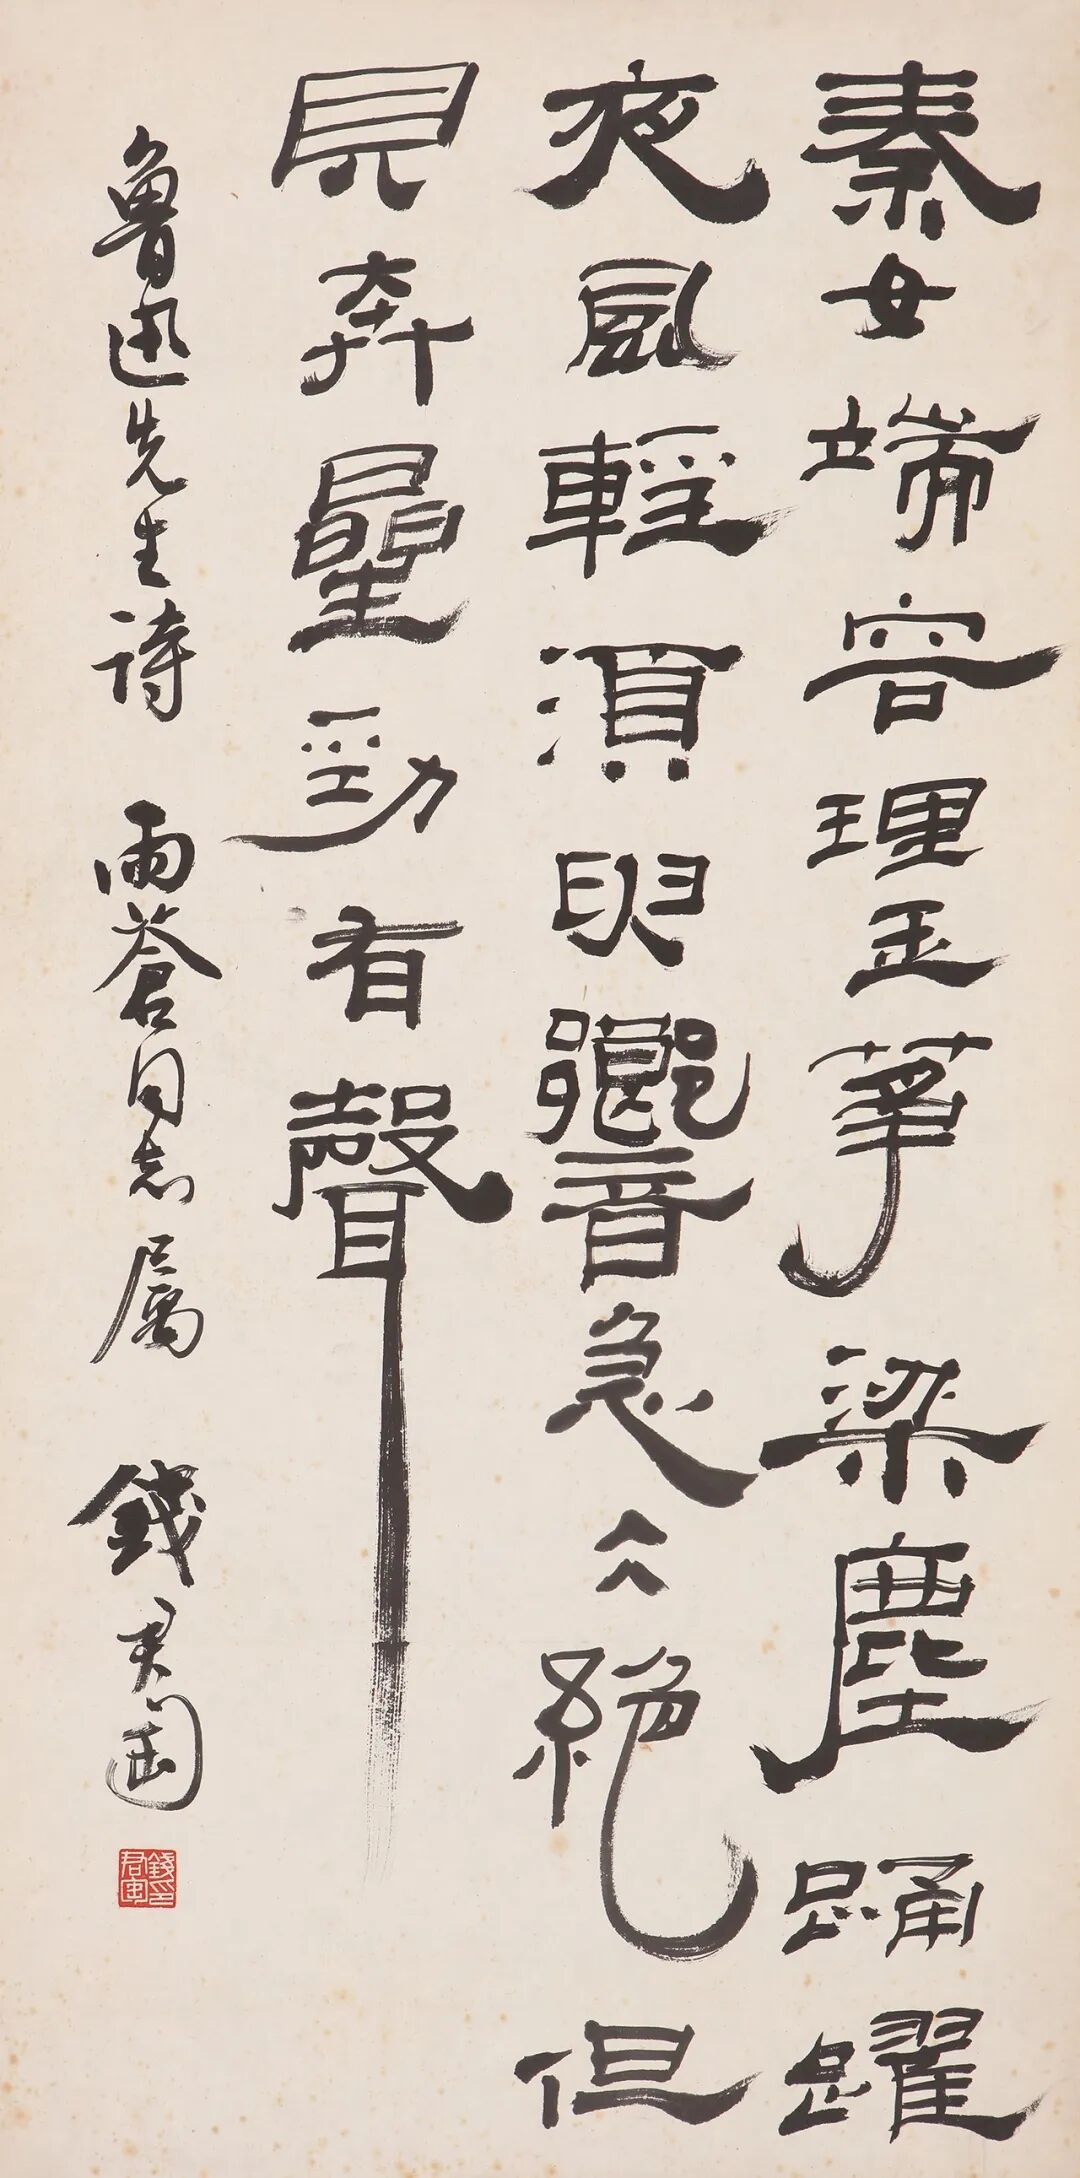 秦女端容理玉箏梁塵踊躍
夜風輕湏臾響急仌絕但
見奔曐勁有聲
魯迅先生詩 雨蒼同志屬 錢君匋
錢印君匋